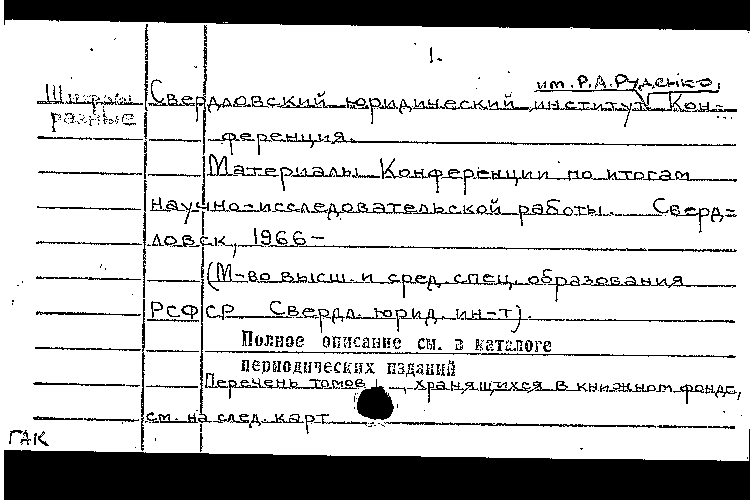 1.
им. Р.А. Руденко,
Шифры Свердловский юридический институт Кон-
разные ференция.
Материалы Конференции по итогам
научно-исследовательской работы. Сверд-
ловск, 1966-
(М-во высш. и сред. спец. образования
РСФСР Свердл. юрид. ин-т).
Полное описание см. в каталоге
периодических изданий
Перечень томов, хранящихся в книжном фонде,
см. на след. карт
ГАК